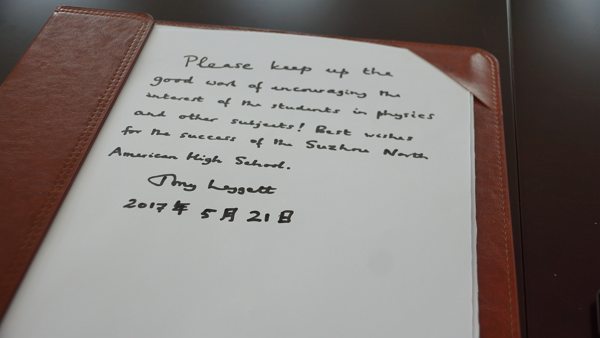 Please keep up the
good work of encouraging the
interest of the students in physics
and other subjects! Best wishes
for the success of the Suzhou North
American High School.
Tony Leggett
2017年 5月 21日